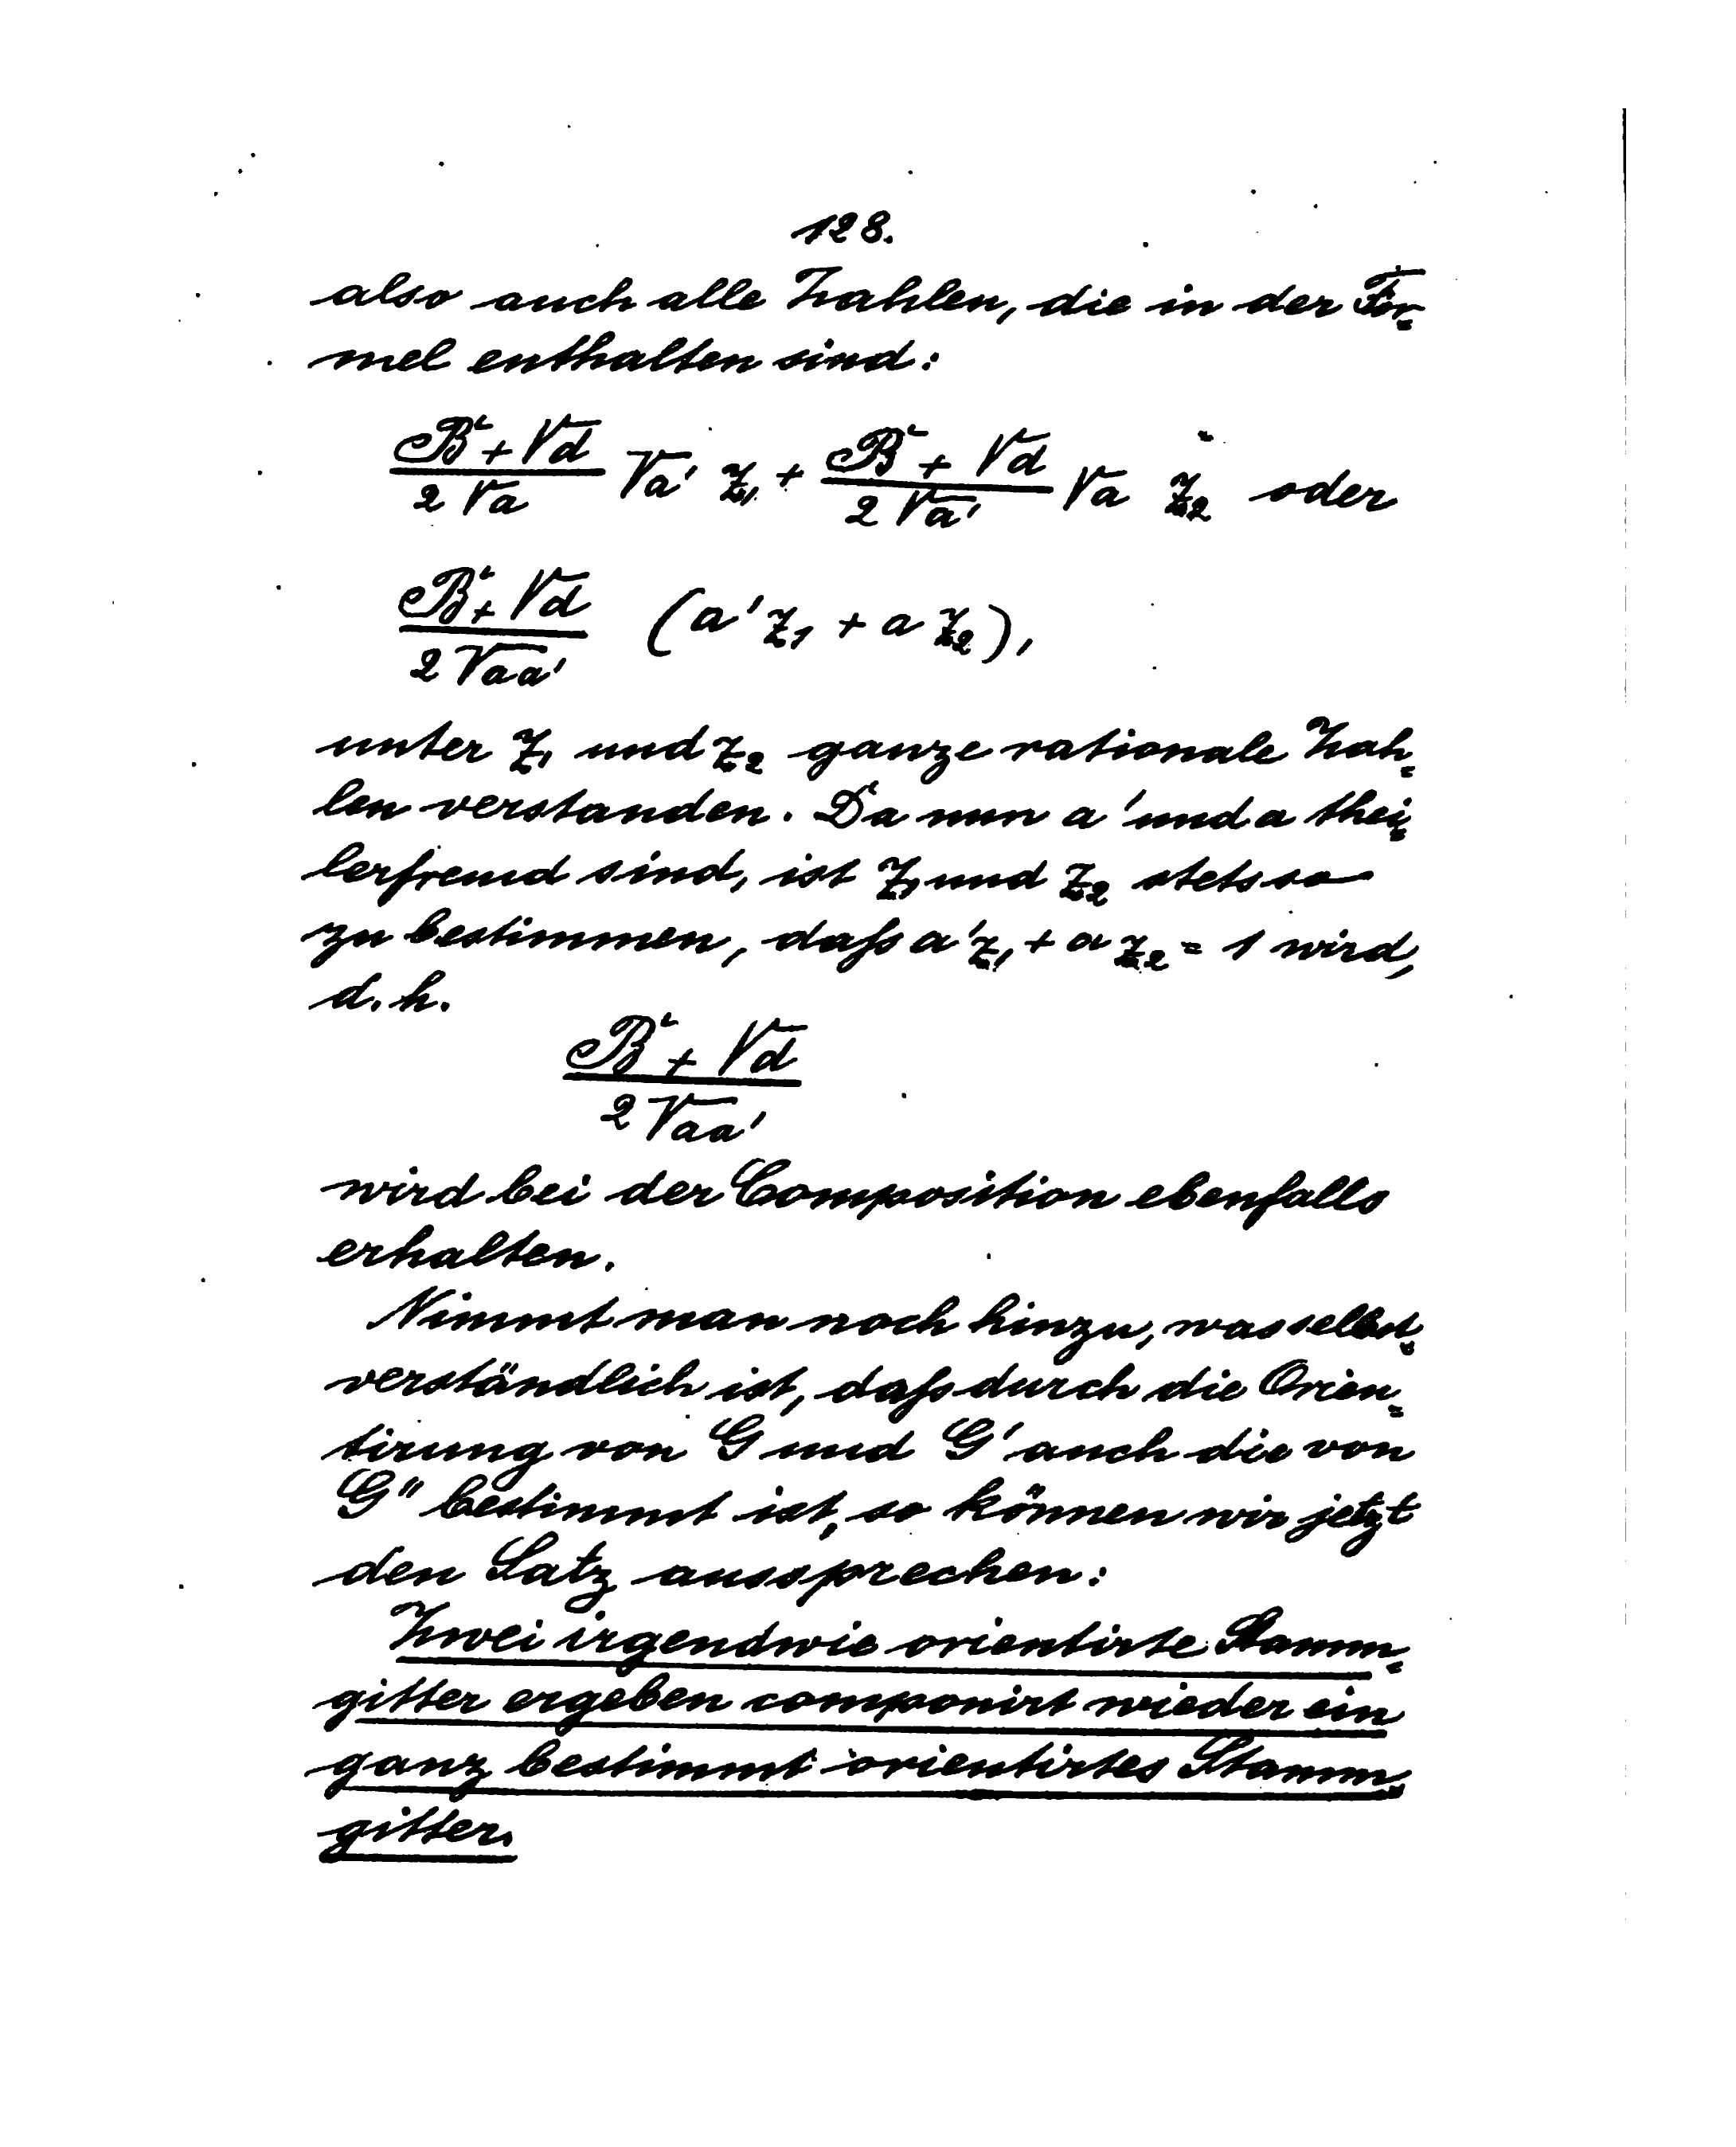 128.
also auch alle Zahlen, die in der For-
mel enthalten sind:
(B + √d)/(2√a) √a' z₁ + (B + √d)/(2√a') √a z₂ oder
(B + √d)/(2√aa') (a'z₁ + a z₂),
unter z₁ und z₂ ganze rationale Zah-
len verstanden. Da nun a' und a thei-
lerfremd sind, ist z₁ und z₂ stets so
zu bestimmen, daſs a'z₁ + a z₂ = 1 wird,
d. h.
(B + √d)/(2√aa')
wird bei der Composition ebenfalls
erhalten.
Nimmt man noch hinzu, was selbst-
verständlich ist, daſs durch die Orien-
tirung von G und G' auch die von
G" bestimmt ist, so können wir jetzt
den Satz aussprechen:
Zwei irgendwie orientirte Stamm-
gitter ergeben componirt wieder ein
ganz bestimmt orientirtes Stamm-
gitter.